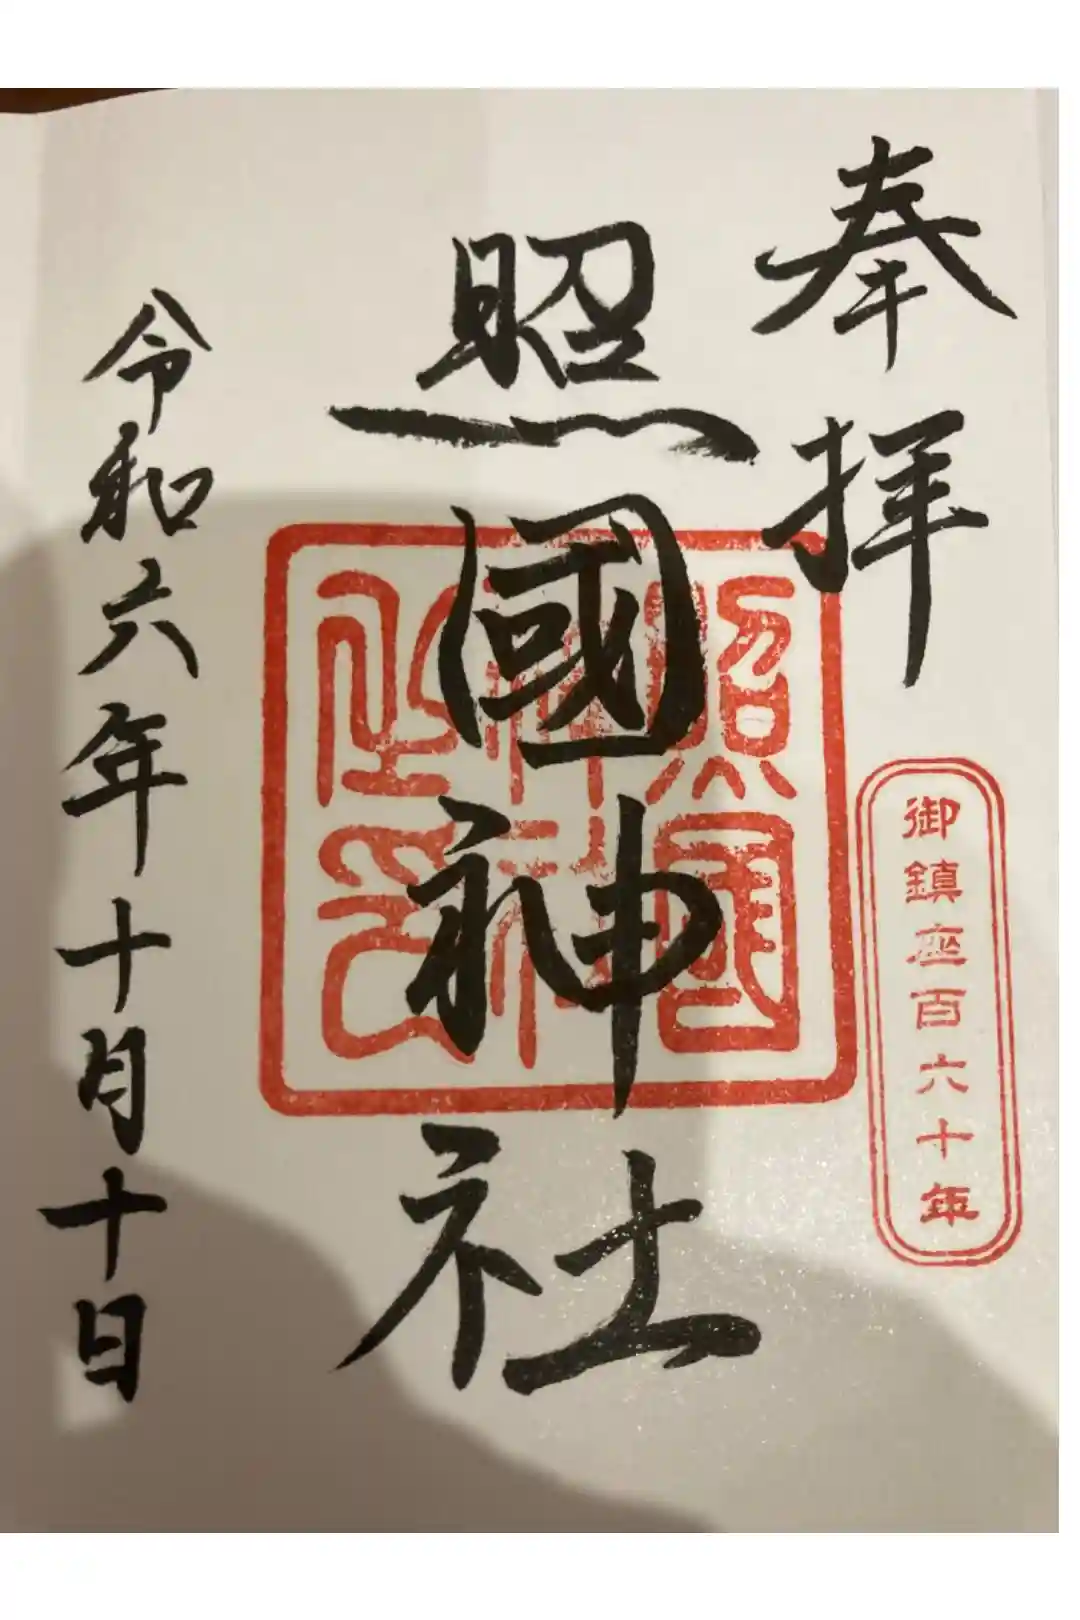 奉拝
御鎮座百六十年
照國神社
照國
神社
之印
令和六年十月十日